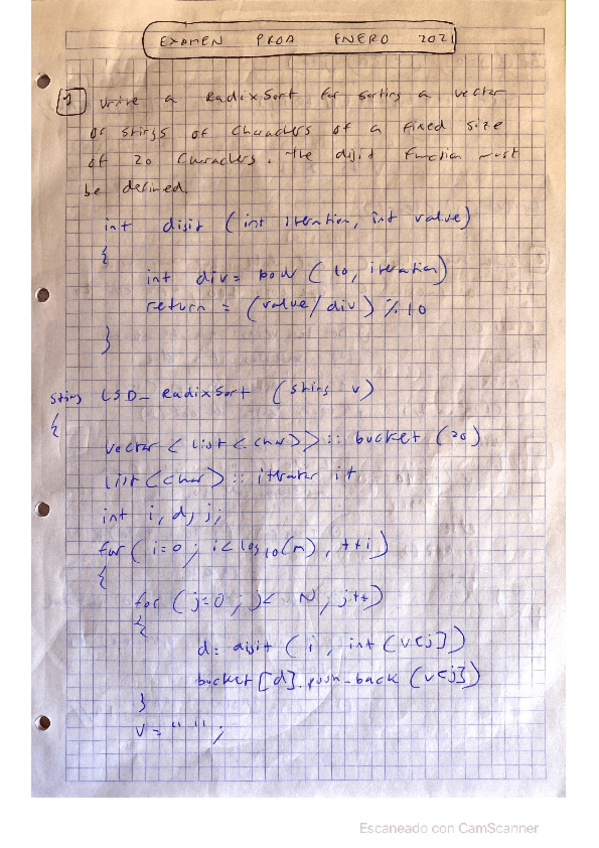 EXAMEN PROA ENERO 2021
1 Write a RadixSort for sorting a vector
of strings of characters of a fixed size
of 20 characters. The digit function must
be defined.
int digit (int iteration, int value)
{
int div = pow (10, iteration)
return = (value/div) % 10
}
string LSD_RadixSort (string v)
{
vector < list < char >> :: bucket (20)
list < char > :: iterator it
int i, d, j;
for (i=0; i < log10(n), ++i)
{
for (j=0; j< N; j++)
{
d= digit (i, int (v[j])
bucket [d].push_back (v[j])
}
v = " ";
Escaneado con CamScanner